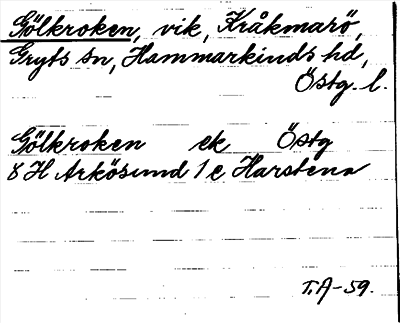 Gölkroken, vik, Kråkmarö,
Gryts sn, Hammarkinds hd,
Östg. l.
Gölkroken ek Östg
8 H Arkösund 1 e Harstena
T.A-59.